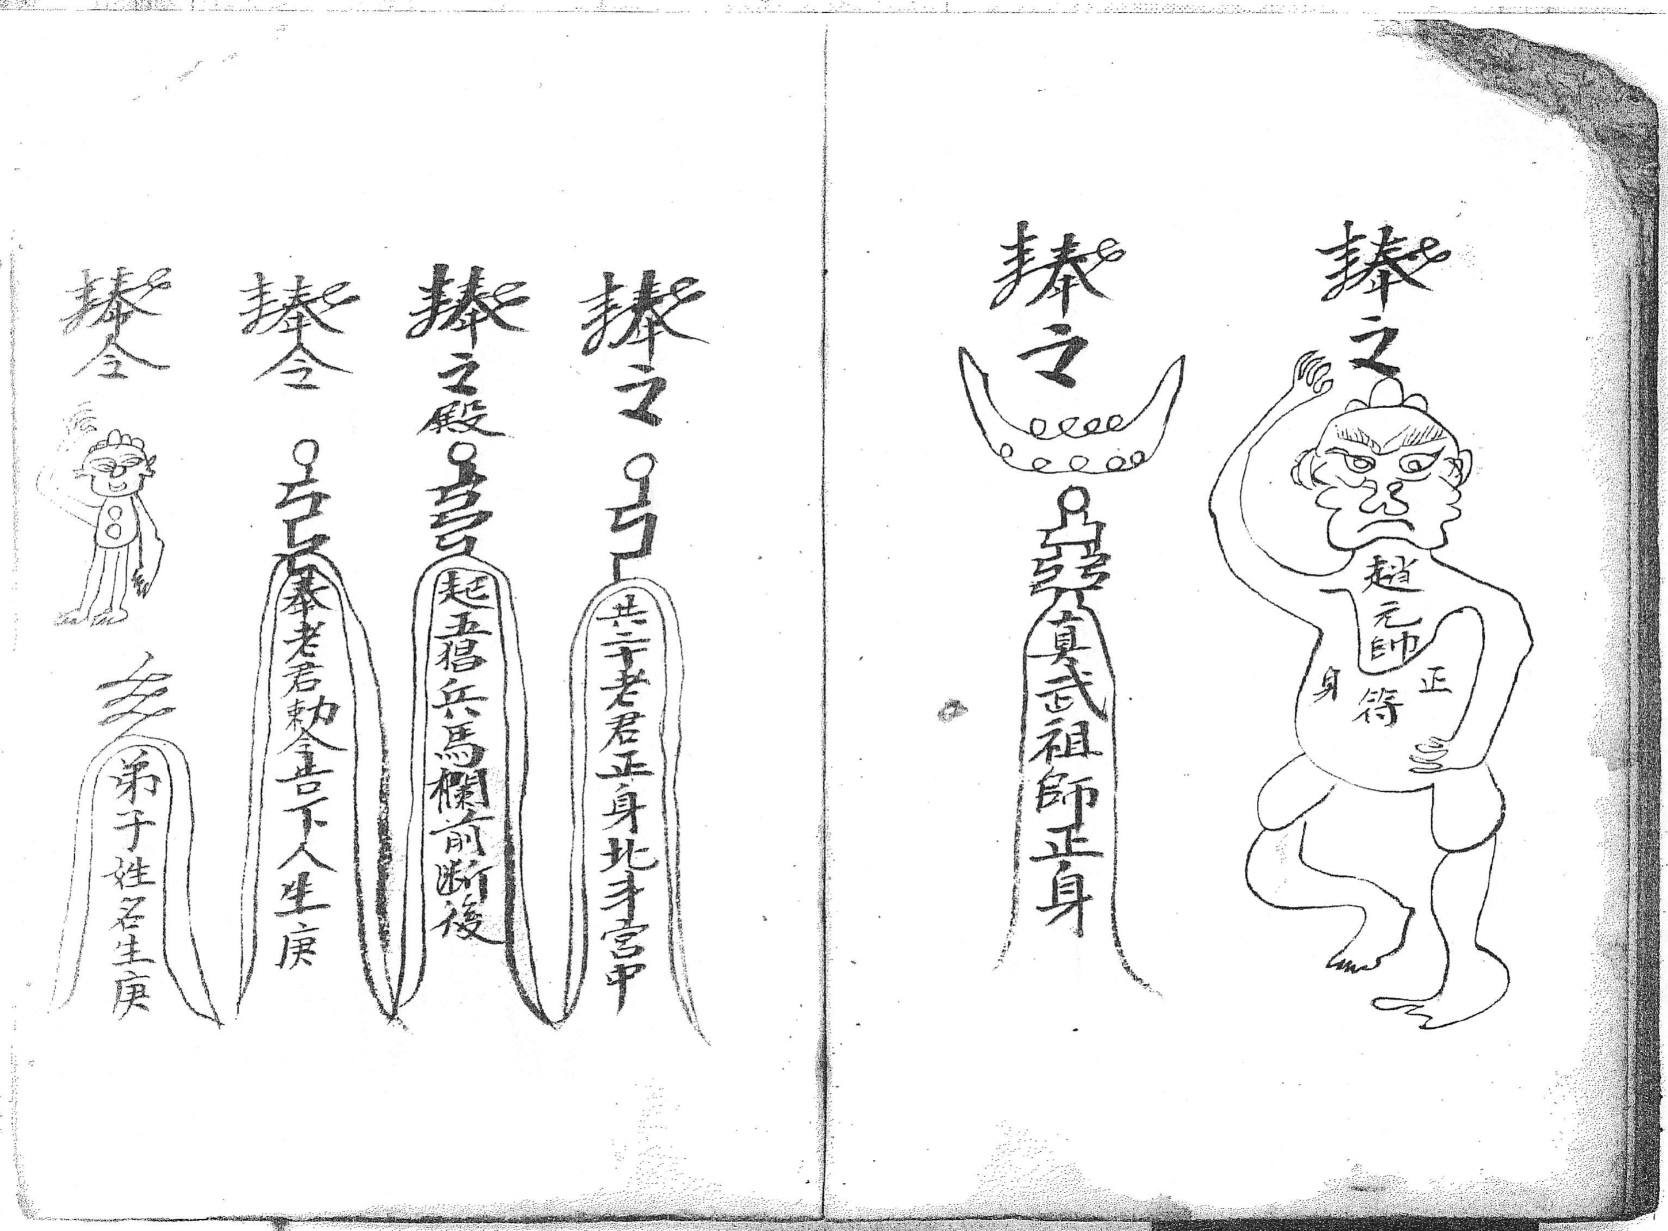 奉之
趙元帥
正符身
奉之
真武祖師正身
奉之
共二十老君正身北斗宮中
奉之殿
起五猖兵馬欄前断後
奉令
奉老君勅令告下人生庚
奉令
弟子姓名生庚